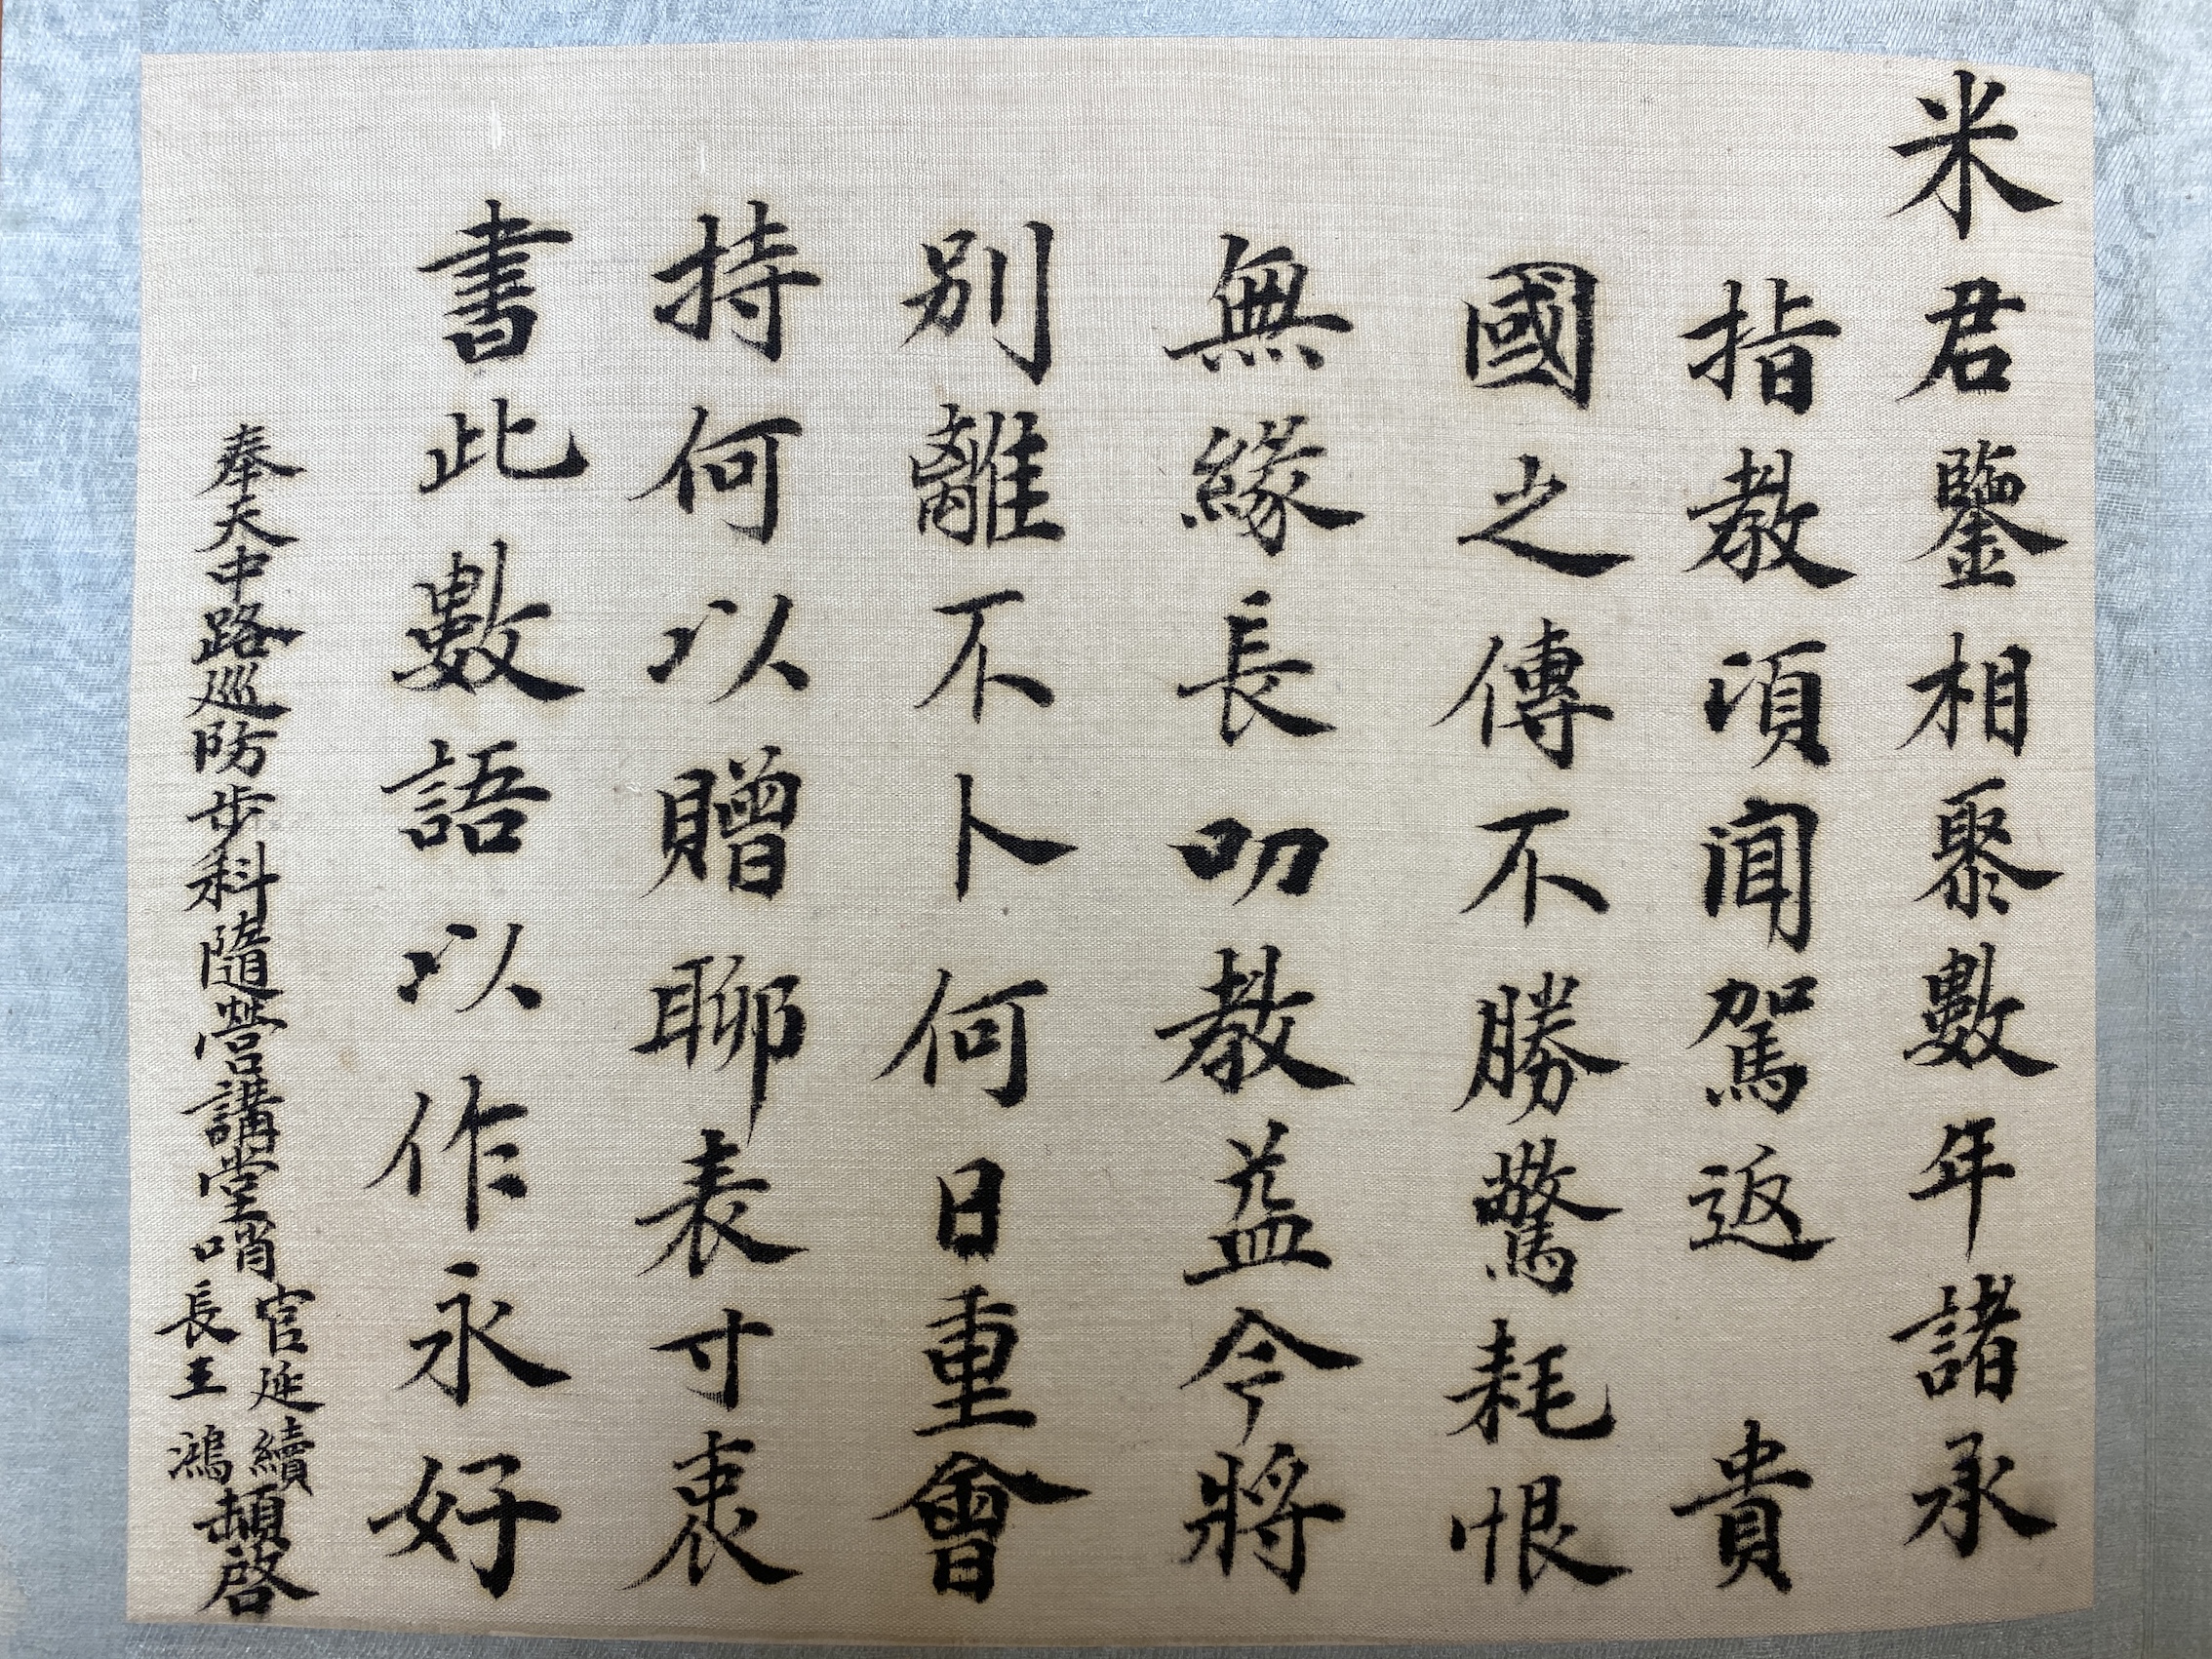 米君鑒相聚數年諸承
指教頃聞駕返 貴
國之傳不勝驚耗恨
無緣長叨教益今將
別離不卜何日重會
持何以贈聊表寸衷
書此數語以作永好
奉天中路巡防步科隨營講堂哨
官延續
長王鴻
頓啓